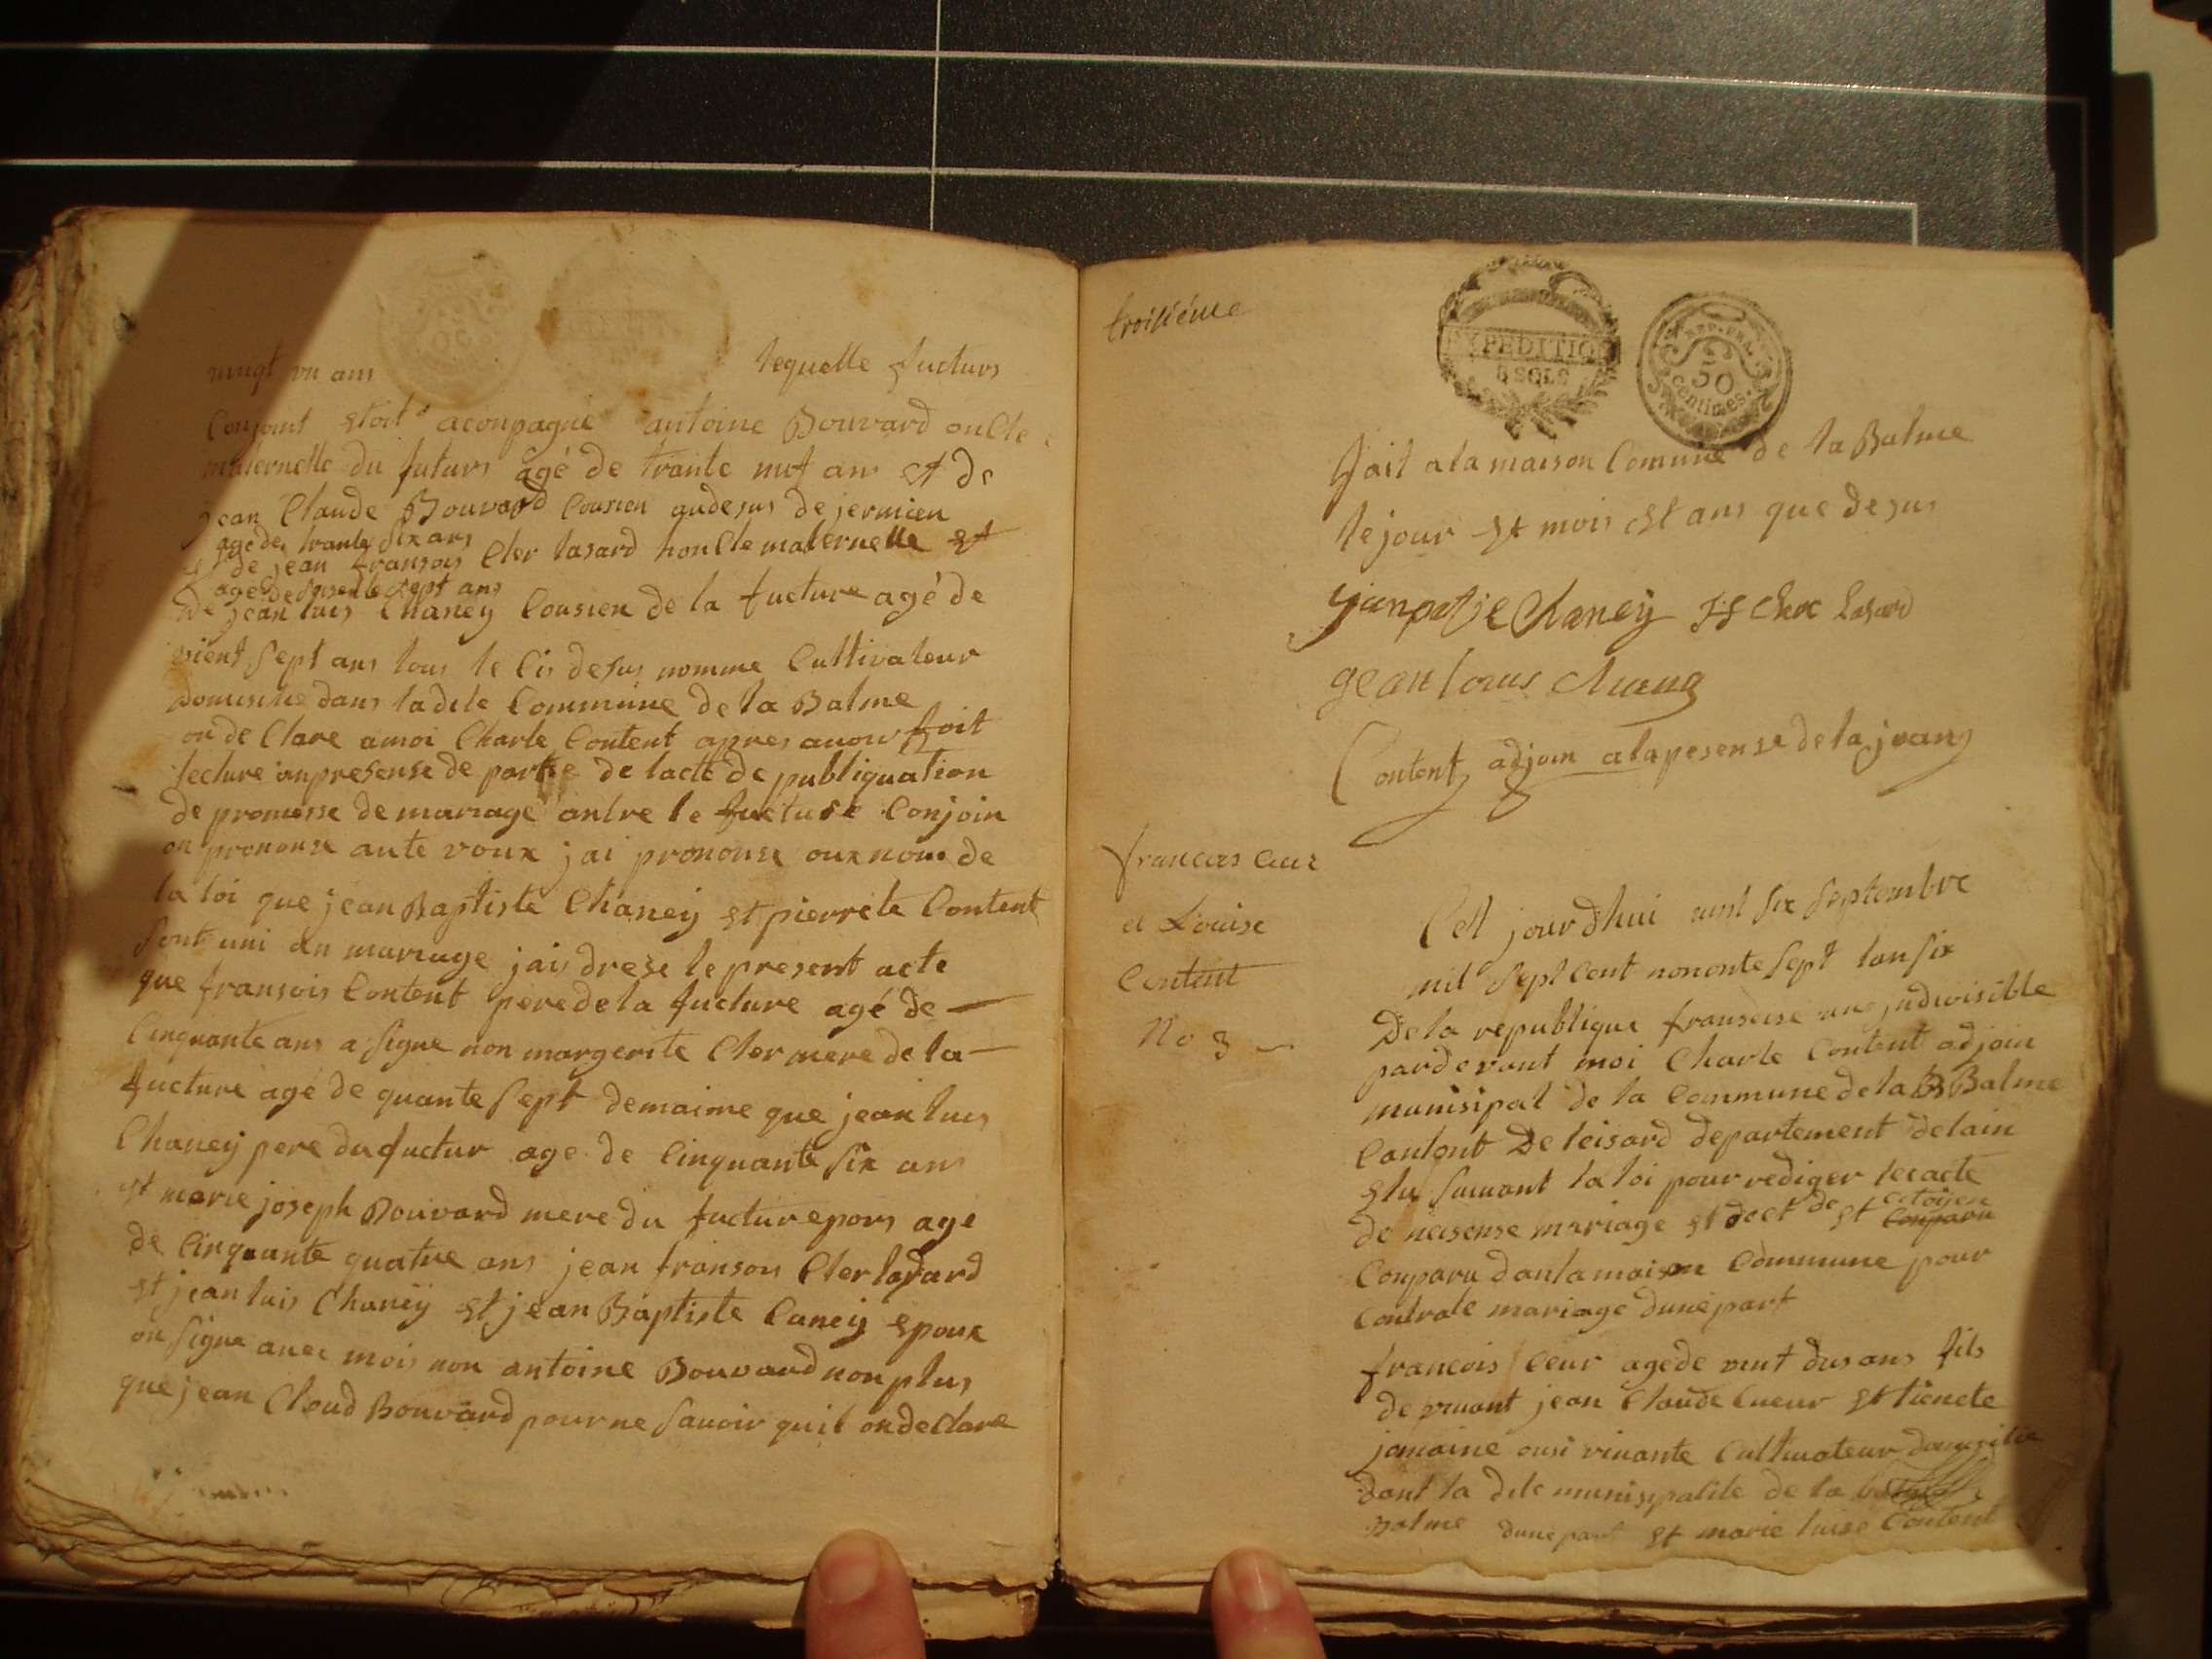 vingt un ans lequelle fucturs
Conjoint etoit aconpagné antoine Bouvard oncle
maternelle du futurs agé de trante nuf ans et de
jean Claude Bouvard Cousien audesus de jermien
agé de trante six ans
de jean fransois Cler lasard honcle maternelle et
agé de sept ans
de jean luis Chaney Cousien de la fucture agé de
vient sept ans tous le Cis desus nomme Cultivateur
Domisilie dans ladite Commune de la Balme
on de Clare amoi Charle Content apres avoir foit
lecture anpresense de partie de lacte de publiquation
de promesse de mariage antre le fucture Conjoin
on prononse aute voux jai prononse oux nom de
la loi que jean Baptiste Chaney et pierrete Content
sont uni an mariage jais drese le present acte
que fransois Content pere de la fucture agé de —
Cinquante ans a signe non margerite Cler mere de la —
fucture agé de quante sept demaime que jean luis
Chaney pere du fuctur age de Cinquante six ans
et marie joseph Bouvard mere du fuctur epors age
de Cinquante quatre ans jean fransois Cler lasard
et jean luis Chaney et jean Baptiste Caney epoux
on signe avec mois non antoine Bouvard non plus
que jean Cloud Bouvard pour ne savoir quil on de Clare
troisiéme
EXPEDITION
8 SOLS
REP. FRA.
50
centimes.
fait a la maison Comune de la Balme
le jour et mois et ans que desus
Chaney jf Clerc Lasard
gean louis
Content adjoin alapesense de la
francois Ceur
et Louise
Content
No 3
Cet jourdhui vint six Septembre
mil sept cent nononte sept lan six
De la republique franseise une jndivisible
pardevant moi Charle Content adjoin
munisipal de la Commune de la B Balme
Contont De leisard departement delain
elu suivant la loi pour rediger lecacte
de neisense mariage et de et citoyen Conparu
Conparu dan la maison Commune pour
Contrate mariage dune part
francois Ceur age de vint dus ans fils
de vivant jean Claude Cueur et tienete
jamaine ousi vivante Cultivateur domisilie
dant la dite munisipalite de la
Balme dune part et marie luise Content